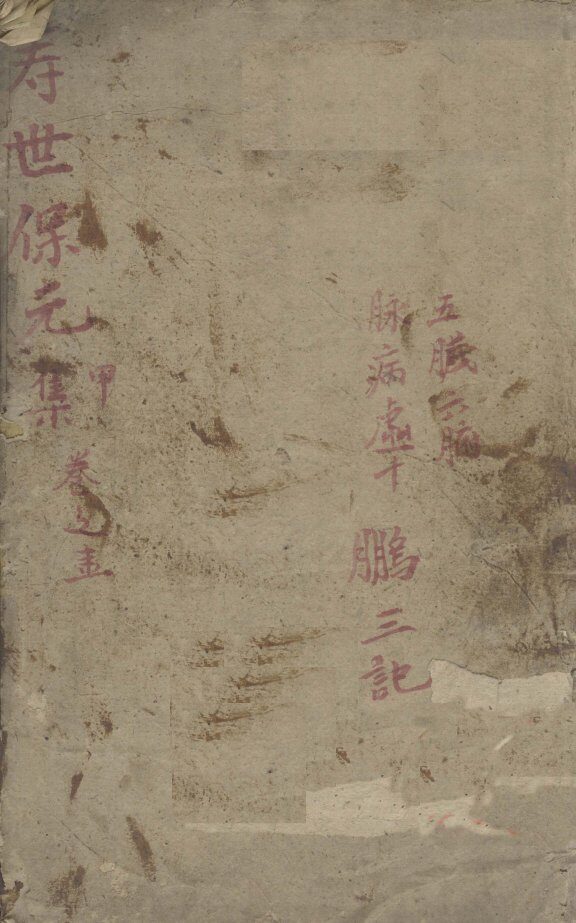 五臟六腑
脉病虚
鹏三記
寿世保元
甲集
卷之